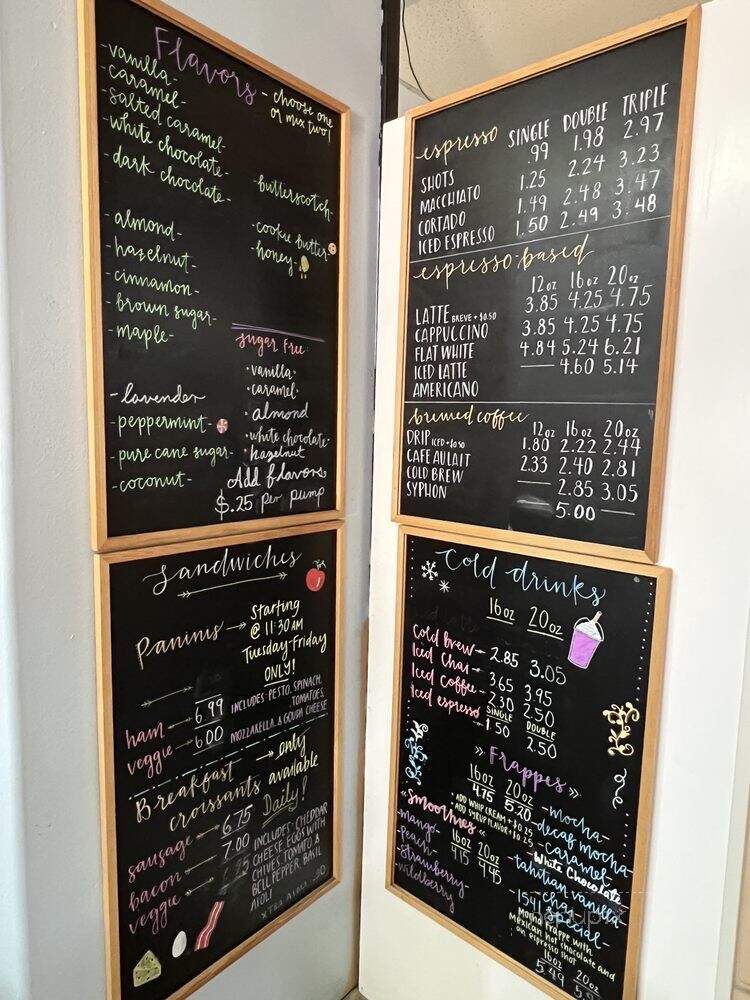 Flavors
- choose one
or mix two!
- vanilla -
- caramel -
- salted caramel -
- white chocolate -
- dark chocolate -
- butterscotch -
- cookie butter -
- honey -
- almond -
- hazelnut -
- cinnamon -
- brown sugar -
- maple -
- lavender
- peppermint -
- pure cane sugar -
- coconut -
sugar free
· vanilla ·
· caramel ·
· almond
· white chocolate ·
· hazelnut
Add flavors
$.25 per pump
espresso SINGLE DOUBLE TRIPLE
SHOTS .99 1.98 2.97
MACCHIATO 1.25 2.24 3.23
CORTADO 1.49 2.48 3.47
ICED ESPRESSO 1.50 2.49 3.48
espresso-based
12oz 16oz 20oz
LATTE BREVE + $0.50 3.85 4.25 4.75
CAPPUCCINO 3.85 4.25 4.75
FLAT WHITE 4.84 5.24 6.21
ICED LATTE — 4.60 5.14
AMERICANO
brewed coffee
12oz 16oz 20oz
DRIP ICED + $0.50 1.80 2.22 2.44
CAFE AU LAIT 2.33 2.40 2.81
COLD BREW — 2.85 3.05
SYPHON — 5.00 —
Sandwiches
Paninis → Starting
@ 11:30 AM
Tuesday-Friday
ONLY!
ham → 6.99 INCLUDES: PESTO, SPINACH,
TOMATOES,
veggie → 6.00 MOZZARELLA, & GOUDA CHEESE
Breakfast → only
croissants available
Daily!
sausage → 6.75 INCLUDES: CHEDDAR
bacon → 7.00 CHEESE, EGGS WITH
veggie → CHIVES, TOMATO &
BELL PEPPER, BASIL
AIOLI
Cold drinks
16oz 20oz
Cold brew → 2.85 3.05
Iced Chai → 3.65 3.95
Iced Coffee → 2.30 2.50
Iced espresso SINGLE DOUBLE
→ 1.50 2.50
» Frappes »
16oz 20oz
4.75 5.20
ADD WHIP CREAM + $0.25
ADD SYRUP FLAVOR + $0.25
- mocha -
decaf mocha -
caramel -
White Chocolate
tahitian vanilla
chai
- 1541 special -
Mocha frappe with
Mexican hot chocolate and
an espresso shot
16oz 20oz
5.49
« Smoothies «
16oz 20oz
4.15 4.45
- mango -
- peach -
- strawberry -
- wildberry -